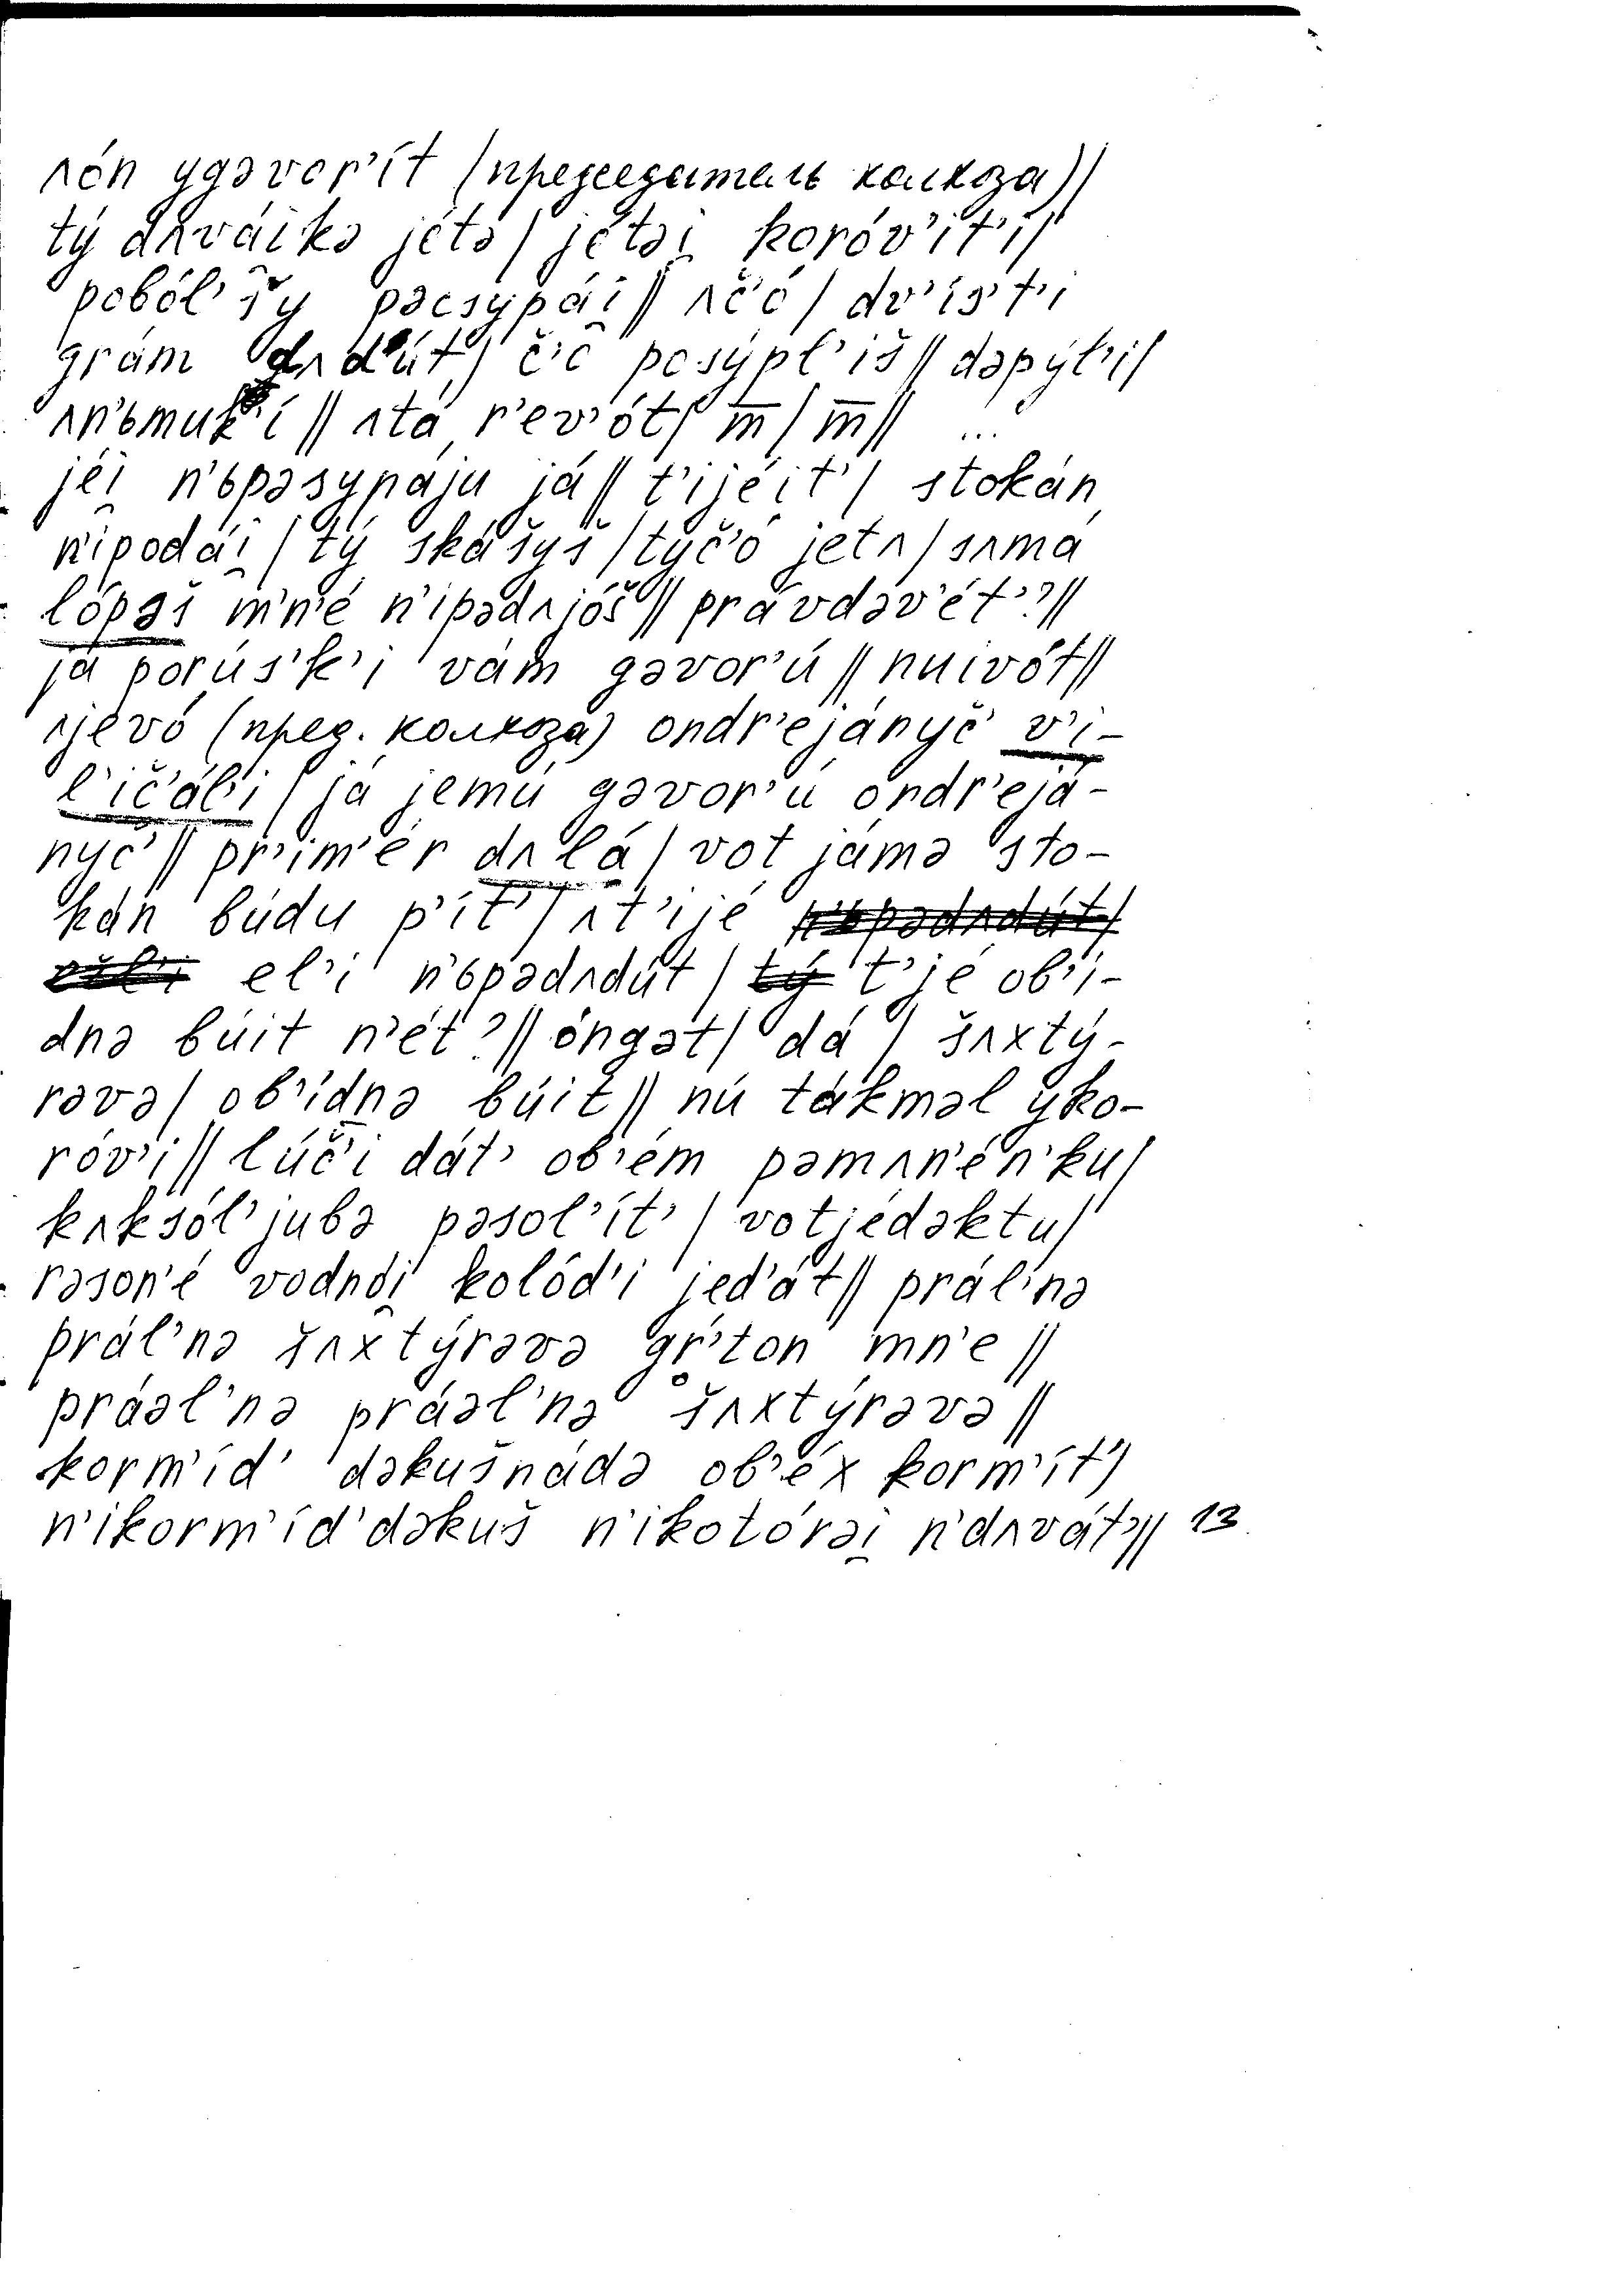 ʌón ygəvor’ít (председатель колхоза)/
tý dʌvái̯kə jétə/ jétəi̯ koróv’it’i/
poból’šy pəcsypái̯// ʌč’ó/ dv’ís’t’i
grám dʌdút/ č’ó posýpl’iš// dəpýl’i/
ʌn’ьmuk’í// ʌtá r’ev’ót/ m̅/ m̅// ...
jéi̯ n’ьpəsypáju já// t’ijéit’/ stokán
n’ipodái̯/ tý skášyš/ tyč’ó jetʌ/ sʌmá
lópəš m’n’é n’ipədʌjóš// právdəv’ét’?//
já porús’k’i vám gəvor’ú// nuivót//
ʌjevó (пред. колхоза) ondr’ejányč’ v’i-
l’ič’ál’i/ já jemú gəvor’ú ondr’ejá-
nyč’// pr’im’ér dʌlá/ vot jámə sto-
kán búdu p’ít’/ ʌt’ijé
el’i n’ьpədʌdút/ t’jé ob’í-
dnə búit n’ét?// óngət/ dá/ šʌxtý-
rəvə/ ob’ídnə búit// nú tákməl yko-
róv’i// lúč’i dát’ ob’ém pəmʌn’én’ku/
kʌksól’jubə pəsol’ít’/ votjédəktu/
rəson’é vodnói̯ kolód’i jed’át// prál’nə
prál’nə šʌxtýrəvə gr̥’íton mn’e//
práəl’nə práəl’nə šʌxtýrəvə//
korm’íd’ dəkušnádə ob’éx korm’ít’/
n’ikorm’íd’dəkuš n’ikotórəi̯ n’dʌvát’// 13